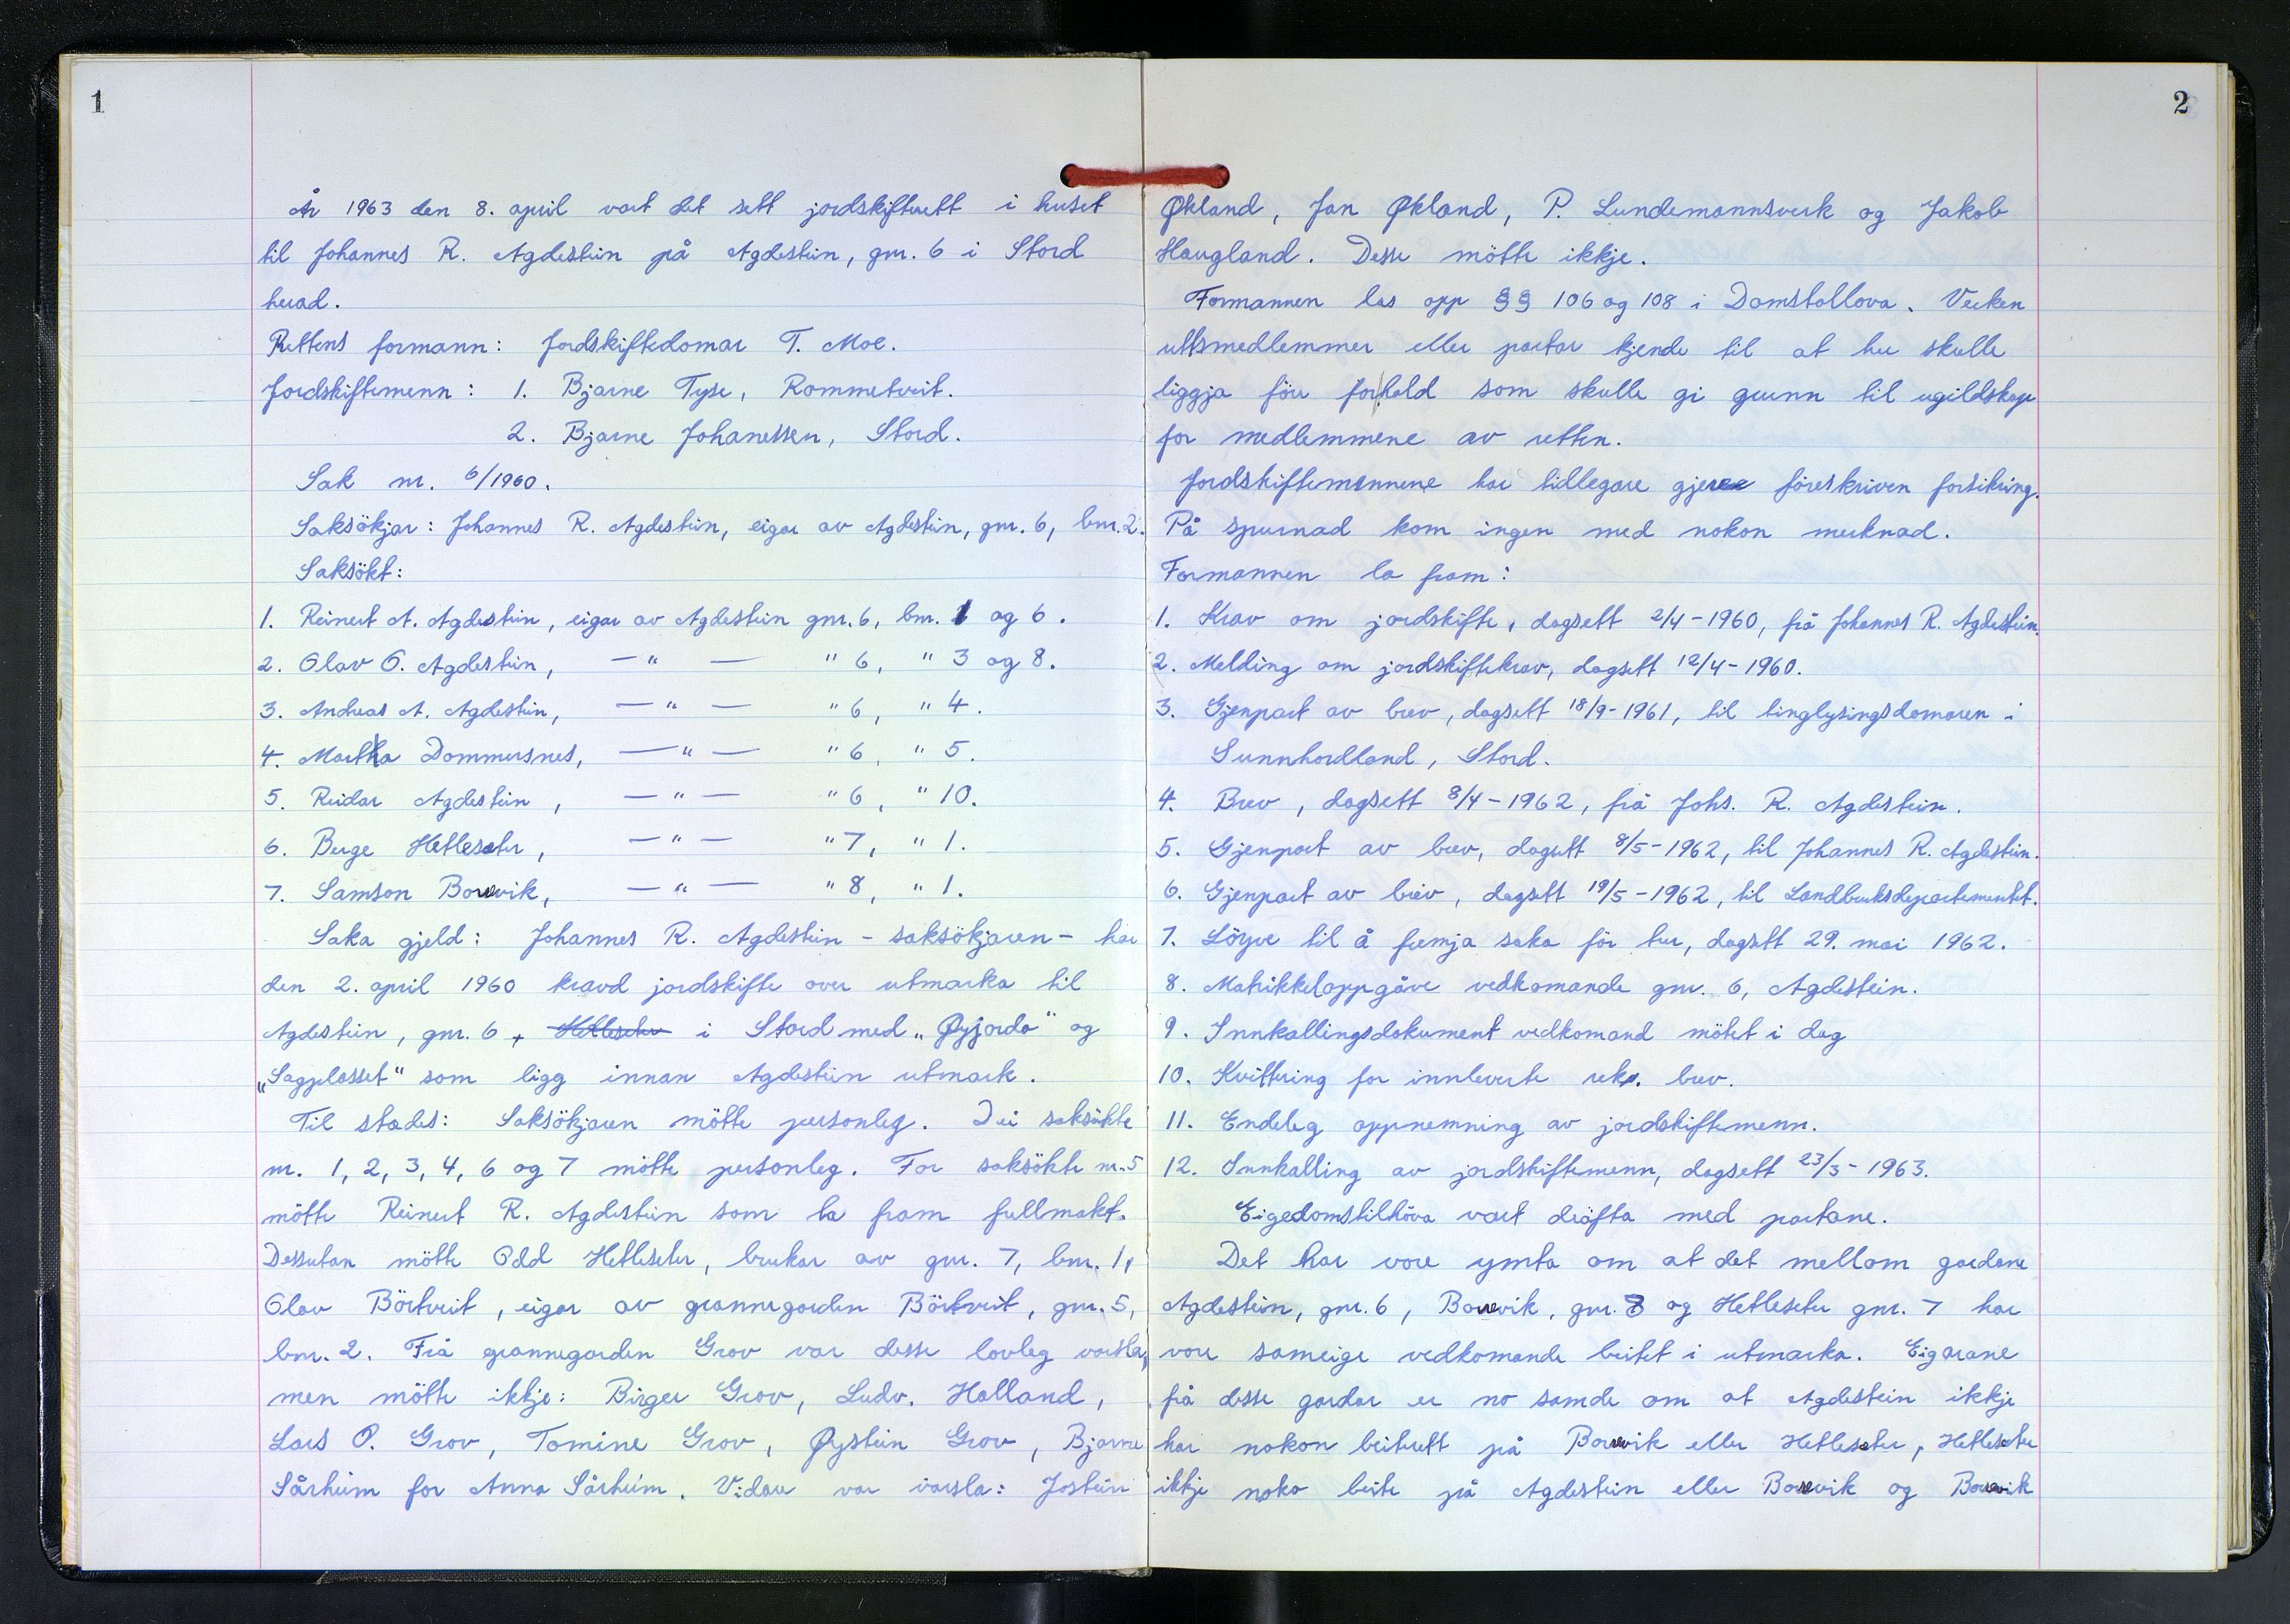 1
År 1963 den 8. april vart det sett jordskifterett i huset
til Johannes R. Agdestein på Agdestein, gnr. 6 i Stord
herad.
Rettens formann: Jordskiftedomar T. Moe.
Jordskiftemenn: 1. Bjarne Tyse, Rommetveit.
2. Bjarne Johanessen, Stord.
Sak nr. 6/1960.
Saksökjar: Johannes R. Agdestein, eigar av Agdestein, gnr. 6, bnr. 2.
Saksökt:
1. Reinert A. Agdestein, eigar av Agdestein gnr. 6, bnr. 1 og 6.
2. Olav O. Agdestein, — " — " 6, " 3 og 8.
3. Andreas A. Agdestein, — " — " 6, " 4.
4. Martha Dommersnes, — " — " 6, " 5.
5. Reidar Agdestein, — " — " 6, " 10.
6. Berge Hetleseter, — " — " 7, " 1.
7. Samson Borevik, — " — " 8, " 1.
Saka gjeld: Johannes R. Agdestein - saksökjaren - har
den 2. april 1960 kravd jordskifte over utmarka til
Agdestein, gnr. 6, Hetleseter i Stord med „Øyjorda" og
„Sagplasset" som ligg innan Agdestein utmark.
Til stades: Saksökjaren mötte personleg. Dei saksökte
nr. 1, 2, 3, 4, 6 og 7 mötte personleg. For saksökte nr. 5
mötte Reinert R. Agdestein som la fram fullmakt.
Dessutan mötte Odd Hetleseter, brukar av gnr. 7, bnr. 1,
Olav Börtveit, eigar av grannegarden Börtveit, gnr. 5,
bnr. 2. Frå grannegarden Grov var desse lovleg varsla,
men mötte ikkje: Birger Grov, Ludv. Halland,
Lars O. Grov, Tomine Grov, Øystein Grov, Bjarne
Sårheim for Anna Sårheim. Vidare var varsla: Jostein
2
Økland, Jan Økland, P. Lundemannsverk og Jakob
Haugland. Desse mötte ikkje.
Formannen las opp §§ 106 og 108 i Domstollova. Verken
rettsmedlemmer eller partar kjende til at her skulle
liggja före forhold som skulle gi grunn til ugildskap
for medlemmene av retten.
Jordskiftemennene har tidlegare gjeve föreskriven forsikring.
På spurnad kom ingen med nokon merknad.
Formannen la fram:
1. Krav om jordskifte, dagsett 2/4-1960, frå Johannes R. Agdestein.
2. Melding om jordskiftekrav, dagsett 12/4-1960.
3. Gjenpart av brev, dagsett 18/9-1961, til tinglysingsdomaren i
Sunnhordland, Stord.
4. Brev, dagsett 8/4-1962, frå Johs. R. Agdestein.
5. Gjenpart av brev, dagsett 8/5-1962, til Johannes R. Agdestein.
6. Gjenpart av brev, dagsett 19/5-1962, til Landbruksdepartementet.
7. Löyve til å fremja saka för tur, dagsett 29. mai 1962.
8. Matrikkeloppgåve vedkomande gnr. 6, Agdestein.
9. Innkallingsdokument vedkomand mötet i dag
10. Kvittering for innleverte rek. brev.
11. Endeleg oppnemning av jordskiftemenn.
12. Innkalling av jordskiftemenn, dagsett 23/3-1963.
Eigedomstilhöva vart dröfta med partane.
Det har vore ymta om at det mellom gardane
Agdestein, gnr. 6, Borevik, gnr. 8 og Hetleseter gnr. 7 har
vore sameige vedkomande beitet i utmarka. Eigarane
på desse gardar er no samde om at Agdestein ikkje
har nokon beiterett på Borevik eller Hetleseter, Hetleseter
ikkje noko beite på Agdestein eller Borevik og Borevik